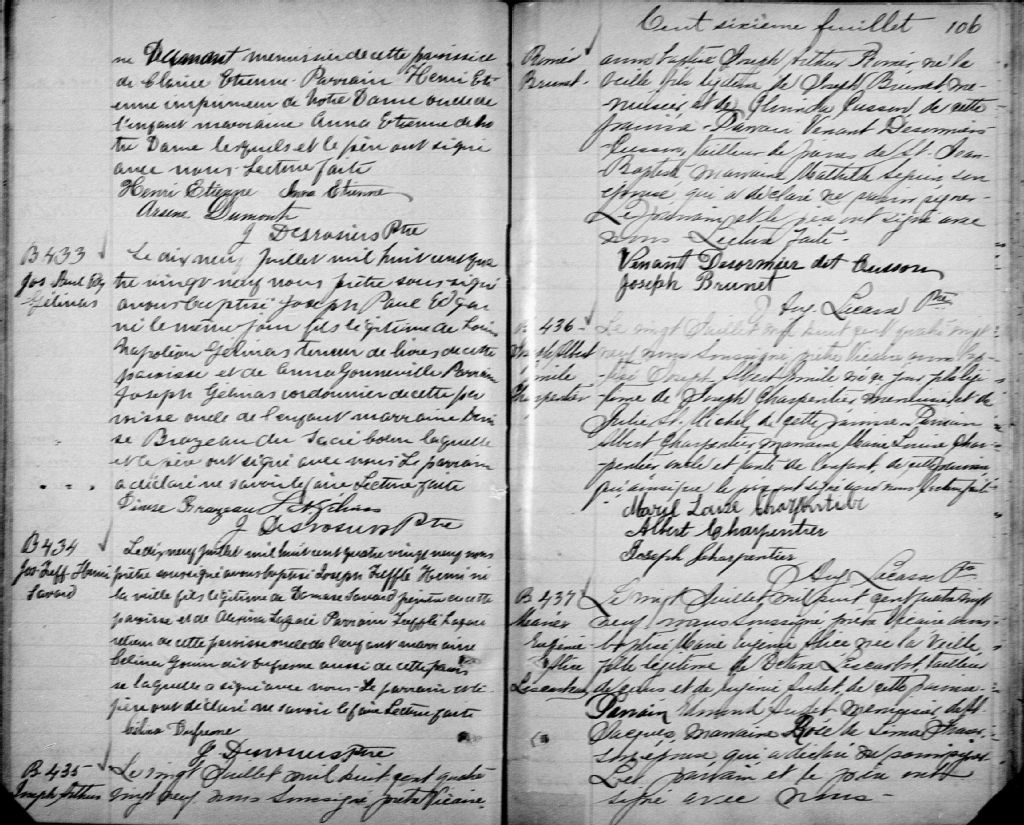 ne Dumont menuisier de cette paroisse
de Claire Etienne. Parrain Henri Eti-
enne imprimeur de Notre Dame oncle de
l'enfant marraine Anna Etienne de No
tre Dame lesquels et le père ont signé
avec nous. Lecture faite
Henri Etienne Anna Etienne
Arsène Dumont
J Desrosiers Ptre
B 433
Jos Paul Ed
Gélinas
Le dix neuf juillet mil huit cent qua
tre vingt neuf nous prêtre soussigné
avons baptisé Joseph Paul Edgar
né le même jour fils légitime de Louis
Napoléon Gélinas teneur de livres de cette
paroisse et de Anna Gonneville Parrain
Joseph Gélinas cordonnier de cette pa
roisse oncle de l'enfant marraine Deni
se Brazeau du Sacré Coeur laquelle
et le père ont signé avec nous Le parrain
a déclaré ne savoir le faire Lecture faite
Denise Brazeau
J Desrosiers Ptre
B 434
Jos Zeff Henri
Savard
Le dix neuf juillet mil huit cent quatre vingt neuf nous
prêtre soussigné avons baptisé Joseph Zeffle Henri né
la veille fils légitime de Damase Savard peintre de cette
paroisse et de Alexina Lagacé Parrain Zeffle Lagacé
de cette paroisse oncle de l'enfant marraine
Celina Gouin dit Dufresne aussi de cette parois
se laquelle a signé avec nous. Le parrain et le
père ont déclaré ne savoir le faire Lecture faite
Celina Dufresne
J. Desrosiers Ptre
B 435
Joseph Arthur
Le vingt Juillet mil huit cent quatre
vingt neuf nous soussigné prêtre Vicaire
Cent sixième feuillet 106
Roméo
Brunet
avons baptisé Joseph Arthur Roméo né la
veille fils légitime de Joseph Brunet me-
nuisier et de Cusson de cette
paroisse. Parrain Venant Desormiers
Cusson, tailleur de pierres de St. Jean
Baptiste Marraine Mathilde Sepien son
épouse qui a déclaré ne savoir signer.
Le parrain et le père ont signé avec
nous Lecture faite.
Venant Desormier dit Cusson
Joseph Brunet
J Aug. Lecava Ptre
B 436
Joseph Albert
Emile
Charpentier
Le vingt Juillet mil huit cent quatre vingt
neuf nous soussigné, prêtre Vicaire avons bap-
tisé Joseph Albert Emile né ce jour fils légi-
time de Joseph Charpentier menuisier et de
Julie St. Michel, de cette paroisse. Parrain
Albert Charpentier, marraine Marie Louise Char-
pentier oncle et tante de l'enfant, de cette paroisse
qui ainsi que le père ont signé avec nous Lecture faite
Marie Louise Charpentier
Albert Charpentier
Joseph Charpentier
Aug. Lecava Ptre
B 437
Eugénie
Alice
Le vingt Juillet mil huit cent quatre vingt
neuf, nous soussigné prêtre Vicaire avons
baptisé Marie Eugénie Alice née la veille,
fille légitime de tailleur
de cuirs et de Eugénie Audet, de cette paroisse.
Parrain Edmond Audet menuisier, de St.
Jacques, marraine
son épouse, qui a déclaré ne savoir signer
Le parrain et le père ont
signé avec nous.